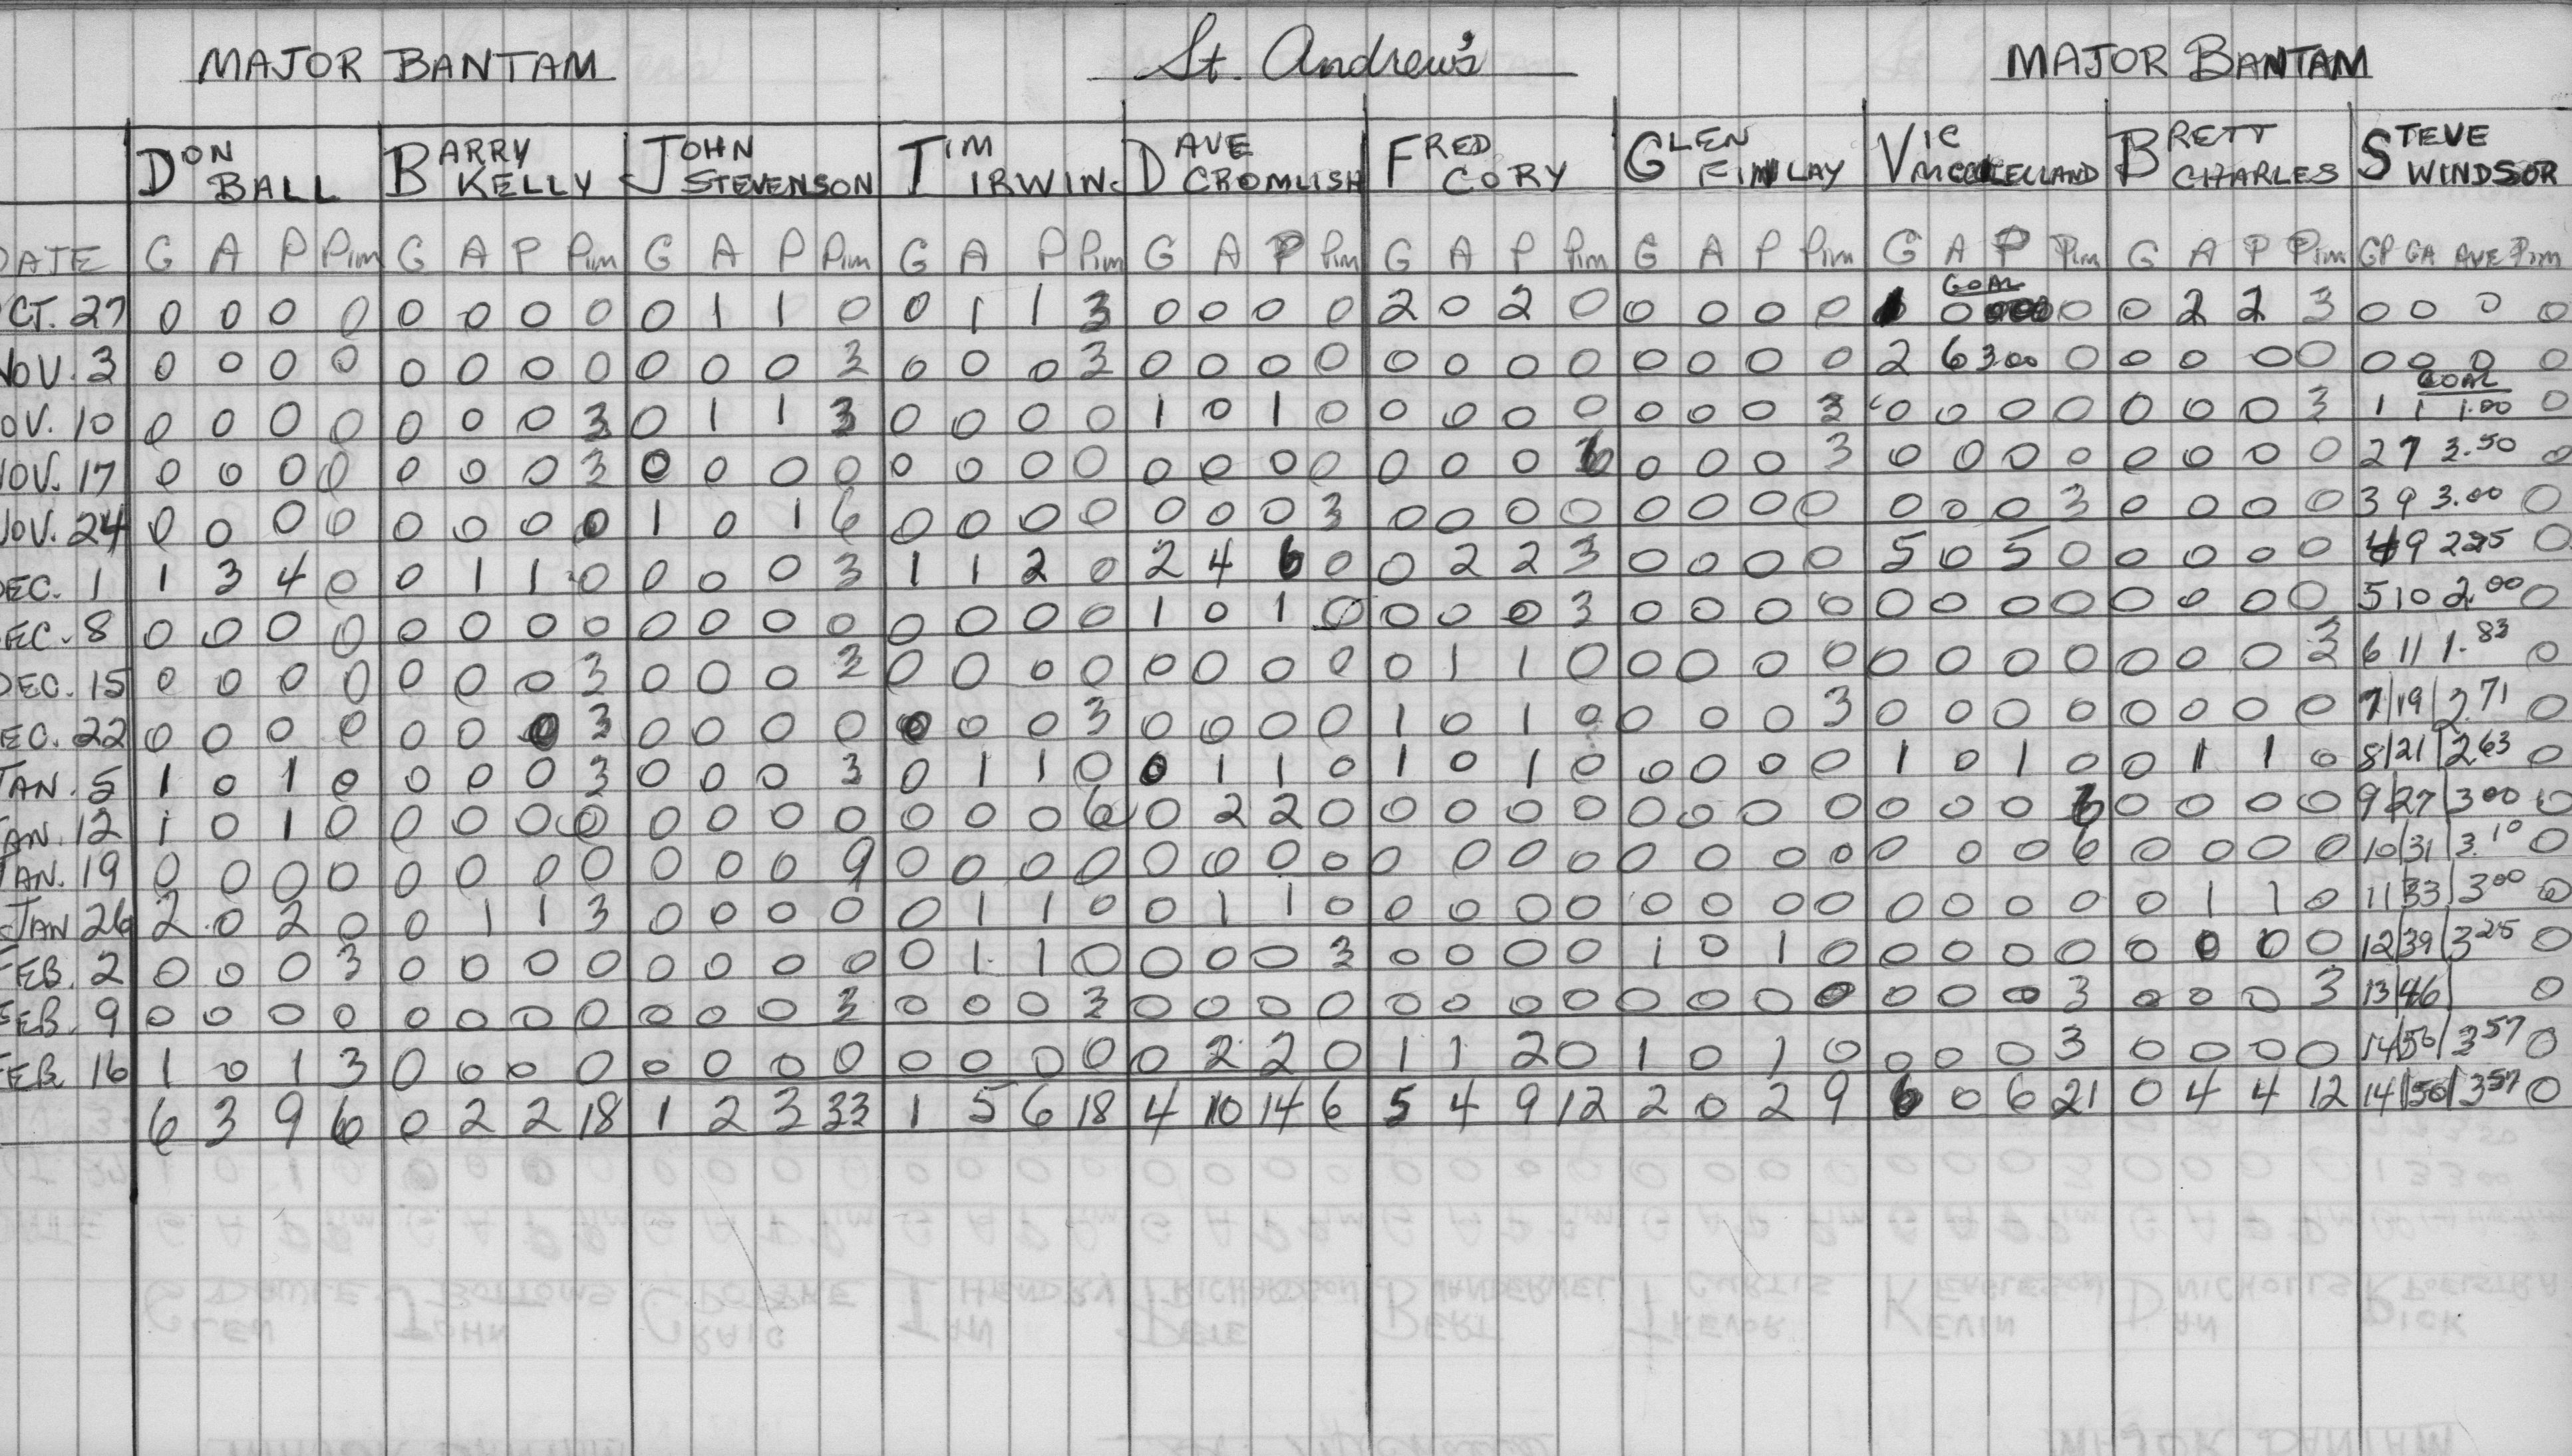 MAJOR BANTAM St. Andrew's MAJOR BANTAM
DON BALL BARRY KELLY JOHN STEVENSON TIM IRWIN DAVE CROMLISH FRED CORY GLEN FINLAY VIC BRETT CHARLES STEVE WINDSOR
DATE G A P Pim G A P Pim G A P Pim G A P Pim G A P Pim G A P Pim G A P Pim G A P Pim G A P Pim GP GA AVE Pim
GOAL
CT. 27 0 0 0 0 0 0 0 0 0 1 1 0 0 1 1 3 0 0 0 0 2 0 2 0 0 0 0 0 0 0 0 2 2 3 0 0 0 0
NOV. 3 0 0 0 0 0 0 0 0 0 0 0 3 0 0 0 3 0 0 0 0 0 0 0 0 0 0 0 0 2 6 3.00 0 0 0 0 0 0 0 0 0
GOAL
OV. 10 0 0 0 0 0 0 0 3 0 1 1 3 0 0 0 0 1 0 1 0 0 0 0 0 0 0 0 3 0 0 0 0 0 0 0 3 1 1 1.00 0
NOV. 17 0 0 0 0 0 0 0 3 0 0 0 0 0 0 0 0 0 0 0 0 0 0 0 0 0 0 3 0 0 0 0 0 0 0 0 2 7 3.50 0
NOV. 24 0 0 0 0 0 0 0 0 1 0 1 6 0 0 0 0 0 0 0 3 0 0 0 0 0 0 0 0 0 0 0 3 0 0 0 0 3 9 3.00 0
DEC. 1 1 3 4 0 0 1 1 0 0 0 0 3 1 1 2 0 2 4 6 0 0 2 2 3 0 0 0 0 5 0 5 0 0 0 0 0 4 9 2.25 0
EC. 8 0 0 0 0 0 0 0 0 0 0 0 0 0 0 0 0 1 0 1 0 0 0 0 3 0 0 0 0 0 0 0 0 0 0 0 0 5 10 2.00 0
DEC. 15 0 0 0 0 0 0 0 3 0 0 0 3 0 0 0 0 0 0 0 0 0 1 1 0 0 0 0 0 0 0 0 0 0 0 0 3 6 11 1.83 0
EC. 22 0 0 0 0 0 0 0 3 0 0 0 0 0 0 0 3 0 0 0 0 1 0 1 0 0 0 0 3 0 0 0 0 0 0 0 0 7/19/2.71 0
JAN. 5 1 0 1 0 0 0 0 3 0 0 0 3 0 1 1 0 0 1 1 0 1 0 1 0 0 0 0 0 1 0 1 0 0 1 1 0 8/21/2.63 0
AN. 12 1 0 1 0 0 0 0 0 0 0 0 0 0 0 0 6 0 2 2 0 0 0 0 0 0 0 0 0 0 0 0 6 0 0 0 0 9/27/3.00 0
JAN. 19 0 0 0 0 0 0 0 0 0 0 0 9 0 0 0 0 0 0 0 0 0 0 0 0 0 0 0 0 0 0 0 6 0 0 0 0 10/31/3.10 0
JAN 26 2 0 2 0 0 1 1 3 0 0 0 0 0 1 1 0 0 1 1 0 0 0 0 0 0 0 0 0 0 0 0 0 0 1 1 0 11/33/3.00 0
FEB. 2 0 0 0 3 0 0 0 0 0 0 0 0 0 1 1 0 0 0 0 3 0 0 0 0 1 0 1 0 0 0 0 0 0 0 0 0 12/39/3.25 0
FEB. 9 0 0 0 0 0 0 0 0 0 0 0 3 0 0 0 3 0 0 0 0 0 0 0 0 0 0 0 0 0 0 0 3 0 0 0 3 13/46/ 0
FEB. 16 1 0 1 3 0 0 0 0 0 0 0 0 0 0 0 0 0 2 2 0 1 1 2 0 1 0 1 0 0 0 0 3 0 0 0 0 14/50/3.57 0
6 3 9 6 0 2 2 18 1 2 3 33 1 5 6 18 4 10 14 6 5 4 9 12 2 0 2 9 6 0 6 21 0 4 4 12 14/50/3.57 0